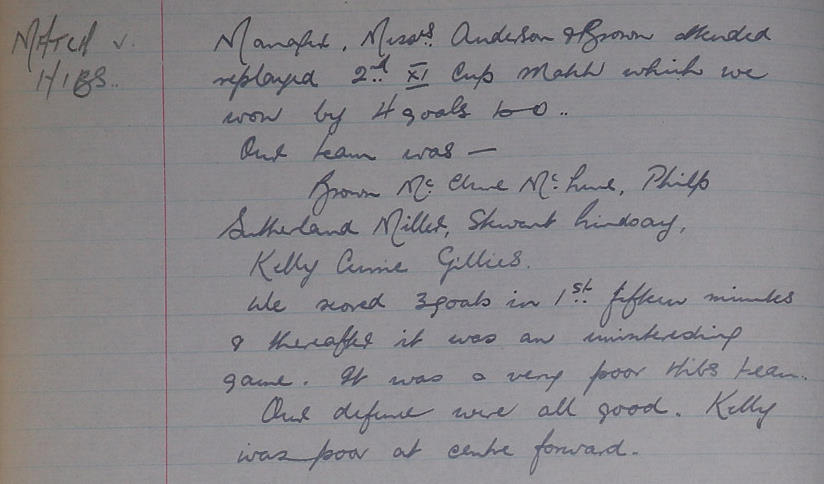 MATCH v.
HIBS.
Manager, Messrs Anderson & Brown attended
replayed 2nd XI Cup Match which we
won by 4 goals to 0.
Our team was —
Brown McClure McLure, Philp
Sutherland Miller, Stewart Lindsay,
Kelly Currie Gillies.
We scored 3 goals in 1st fifteen minutes
& thereafter it was an uninteresting
game. It was a very poor Hibs team.
Our defence were all good. Kelly
was poor at centre forward.